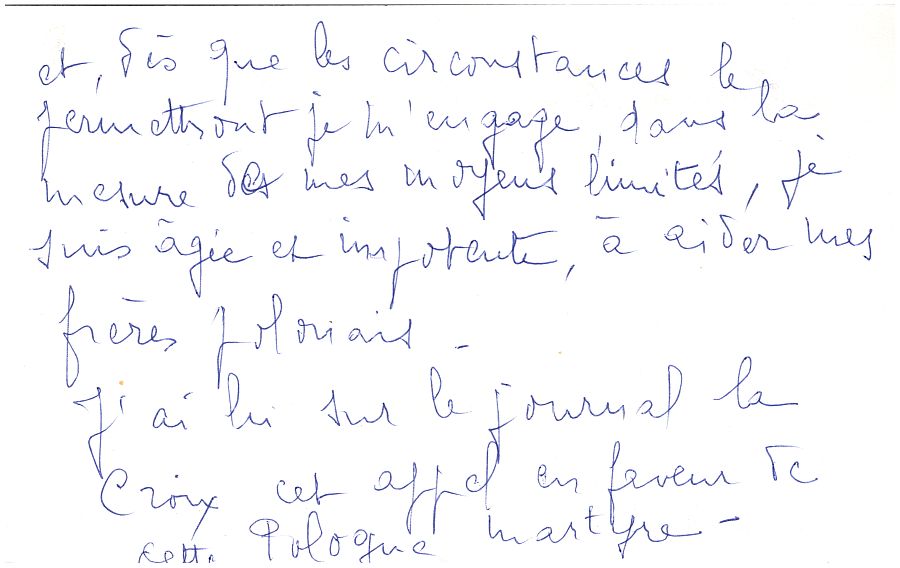 et, dès que les circonstances le
permettront je m'engage, dans la
mesure de mes moyens limités, je
suis âgée et impotente, à aider mes
frères polonais -
J'ai lu sur le journal la
Croix cet appel en faveur de
cette Pologne martyre -